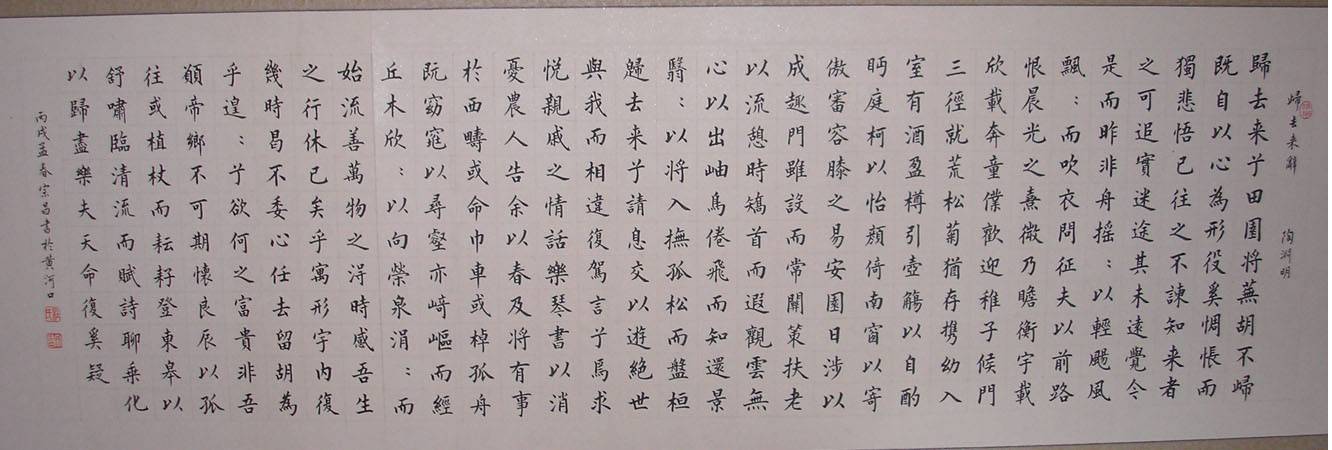 歸去来辭 陶渊明
歸去来兮田園将蕪胡不歸
既自以心為形役奚惆悵而
獨悲悟已往之不諫知来者
之可追實迷途其未遠覺今
是而昨非舟摇：以輕颺風
飄：而吹衣問征夫以前路
恨晨光之熹微乃瞻衡宇載
欣載奔童僕歡迎稚子候門
三徑就荒松菊猶存携幼入
室有酒盈樽引壺觴以自酌
眄庭柯以怡顏倚南窗以寄
傲審容膝之易安園日涉以
成趣門雖設而常關策扶老
以流憩時矯首而遐觀雲無
心以出岫鳥倦飛而知還景
翳：以将入撫孤松而盤桓
歸去来兮請息交以遊絕世
與我而相違復駕言兮焉求
悦親戚之情話樂琴書以消
憂農人告余以春及将有事
於西疇或命巾車或棹孤舟
既窈窕以尋壑亦崎嶇而經
丘木欣：以向榮泉涓：而
始流善萬物之得時感吾生
之行休已矣乎寓形宇内復
幾時曷不委心任去留胡為
乎遑：兮欲何之富貴非吾
願帝鄉不可期懷良辰以孤
往或植杖而耘耔登東皋以
舒嘯臨清流而賦詩聊乘化
以歸盡樂夫天命復奚疑
丙戌孟春宗昌書於黄河口